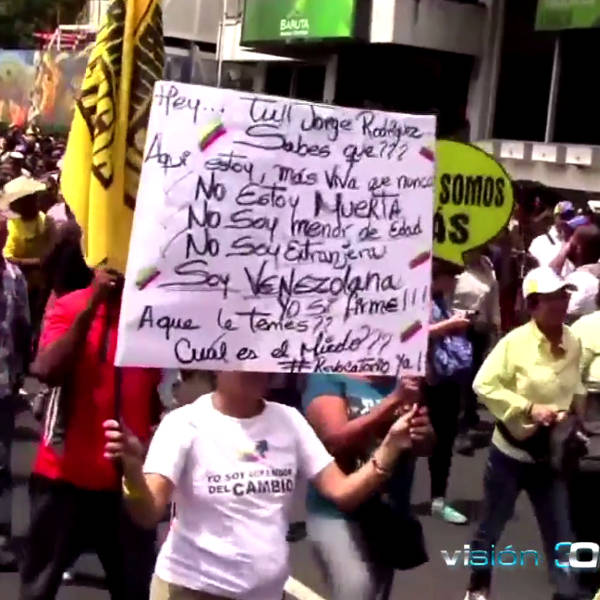 BARUTA
Hey... Tu!! Jorge Rodríguez
Sabes que???
Aqui estoy, más viva que nunca
No Estoy MUERTA
No Soy menor de Edad
No Soy Extranjera
Soy VENEZOLANA
YO SI firme!!!
Aque le temes??
Cual es el Miedo???
#Revocatorio Ya!
SOMOS
ÁS
YO SOY
DEL CAMBIO
visión 30